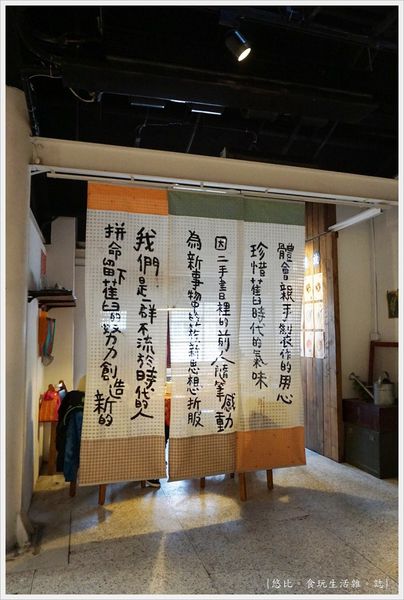 體會親手製作的用心
珍惜舊時代的氣味
因二手書裡的前人隨筆感動
為新事物 新思想折服
我們是一群不流於時代的人
拼命留下舊的努力創造新的
[悠比。食玩生活雜。誌]